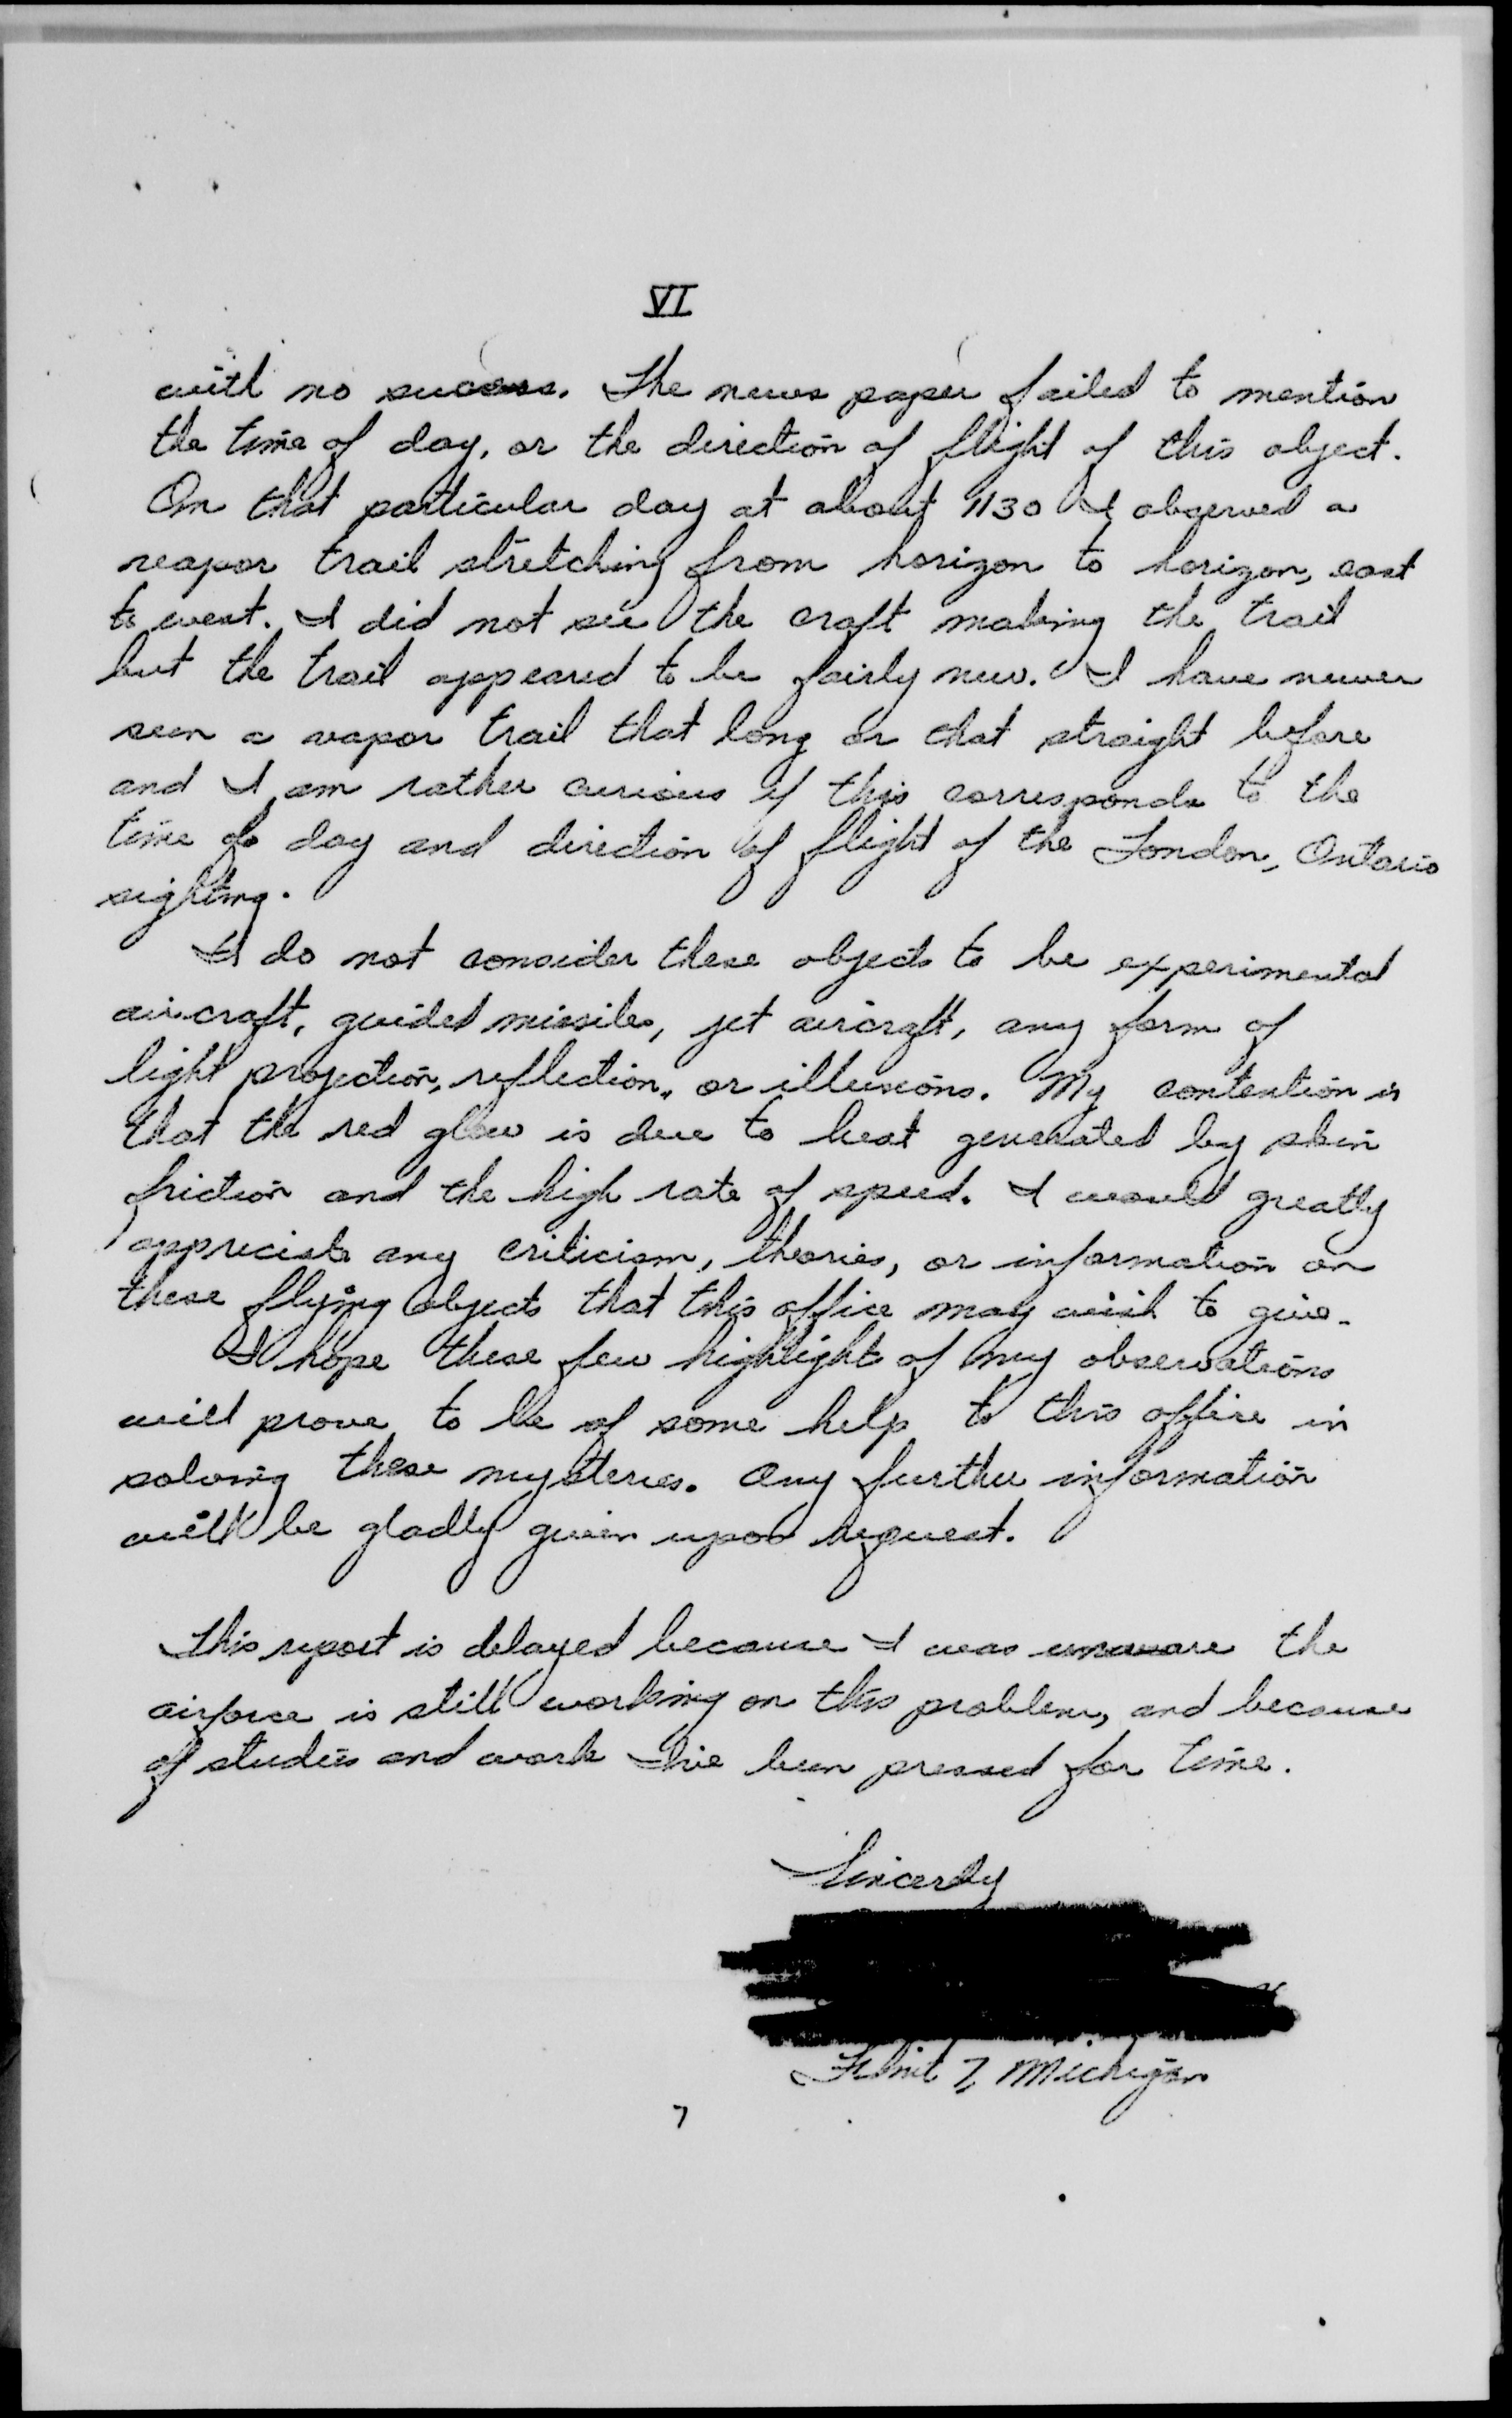 VI
with no success. The news paper failed to mention
the time of day, or the direction of flight of this object.
On that particular day at about 1130 I observed a
veapor trail stretching from horizon to horizon, east
to west. I did not see the craft making the trail
but the trail appeared to be fairly new. I have never
seen a vapor trail that long or that straight before
and I am rather curious if this corresponds to the
time of day and direction of flight of the London, Ontario
sighting.
I do not consider these objects to be experimental
aircraft, guided missiles, jet aircraft, any form of
light projection, reflection, or illusions. My contention is
that the red glow is due to heat generated by skin
friction and the high rate of speed. I would greatly
appreciate any criticism, theories, or information on
these flying objects that this office may wish to give.
I hope these few highlights of my observations
will prove to be of some help to this office in
solving these mysteries. Any further information
will be gladly given upon request.
This report is delayed because I was unaware the
airforce is still working on this problem, and because
of studies and work I've been pressed for time.
Sincerely
Flint 7, Michigan
7